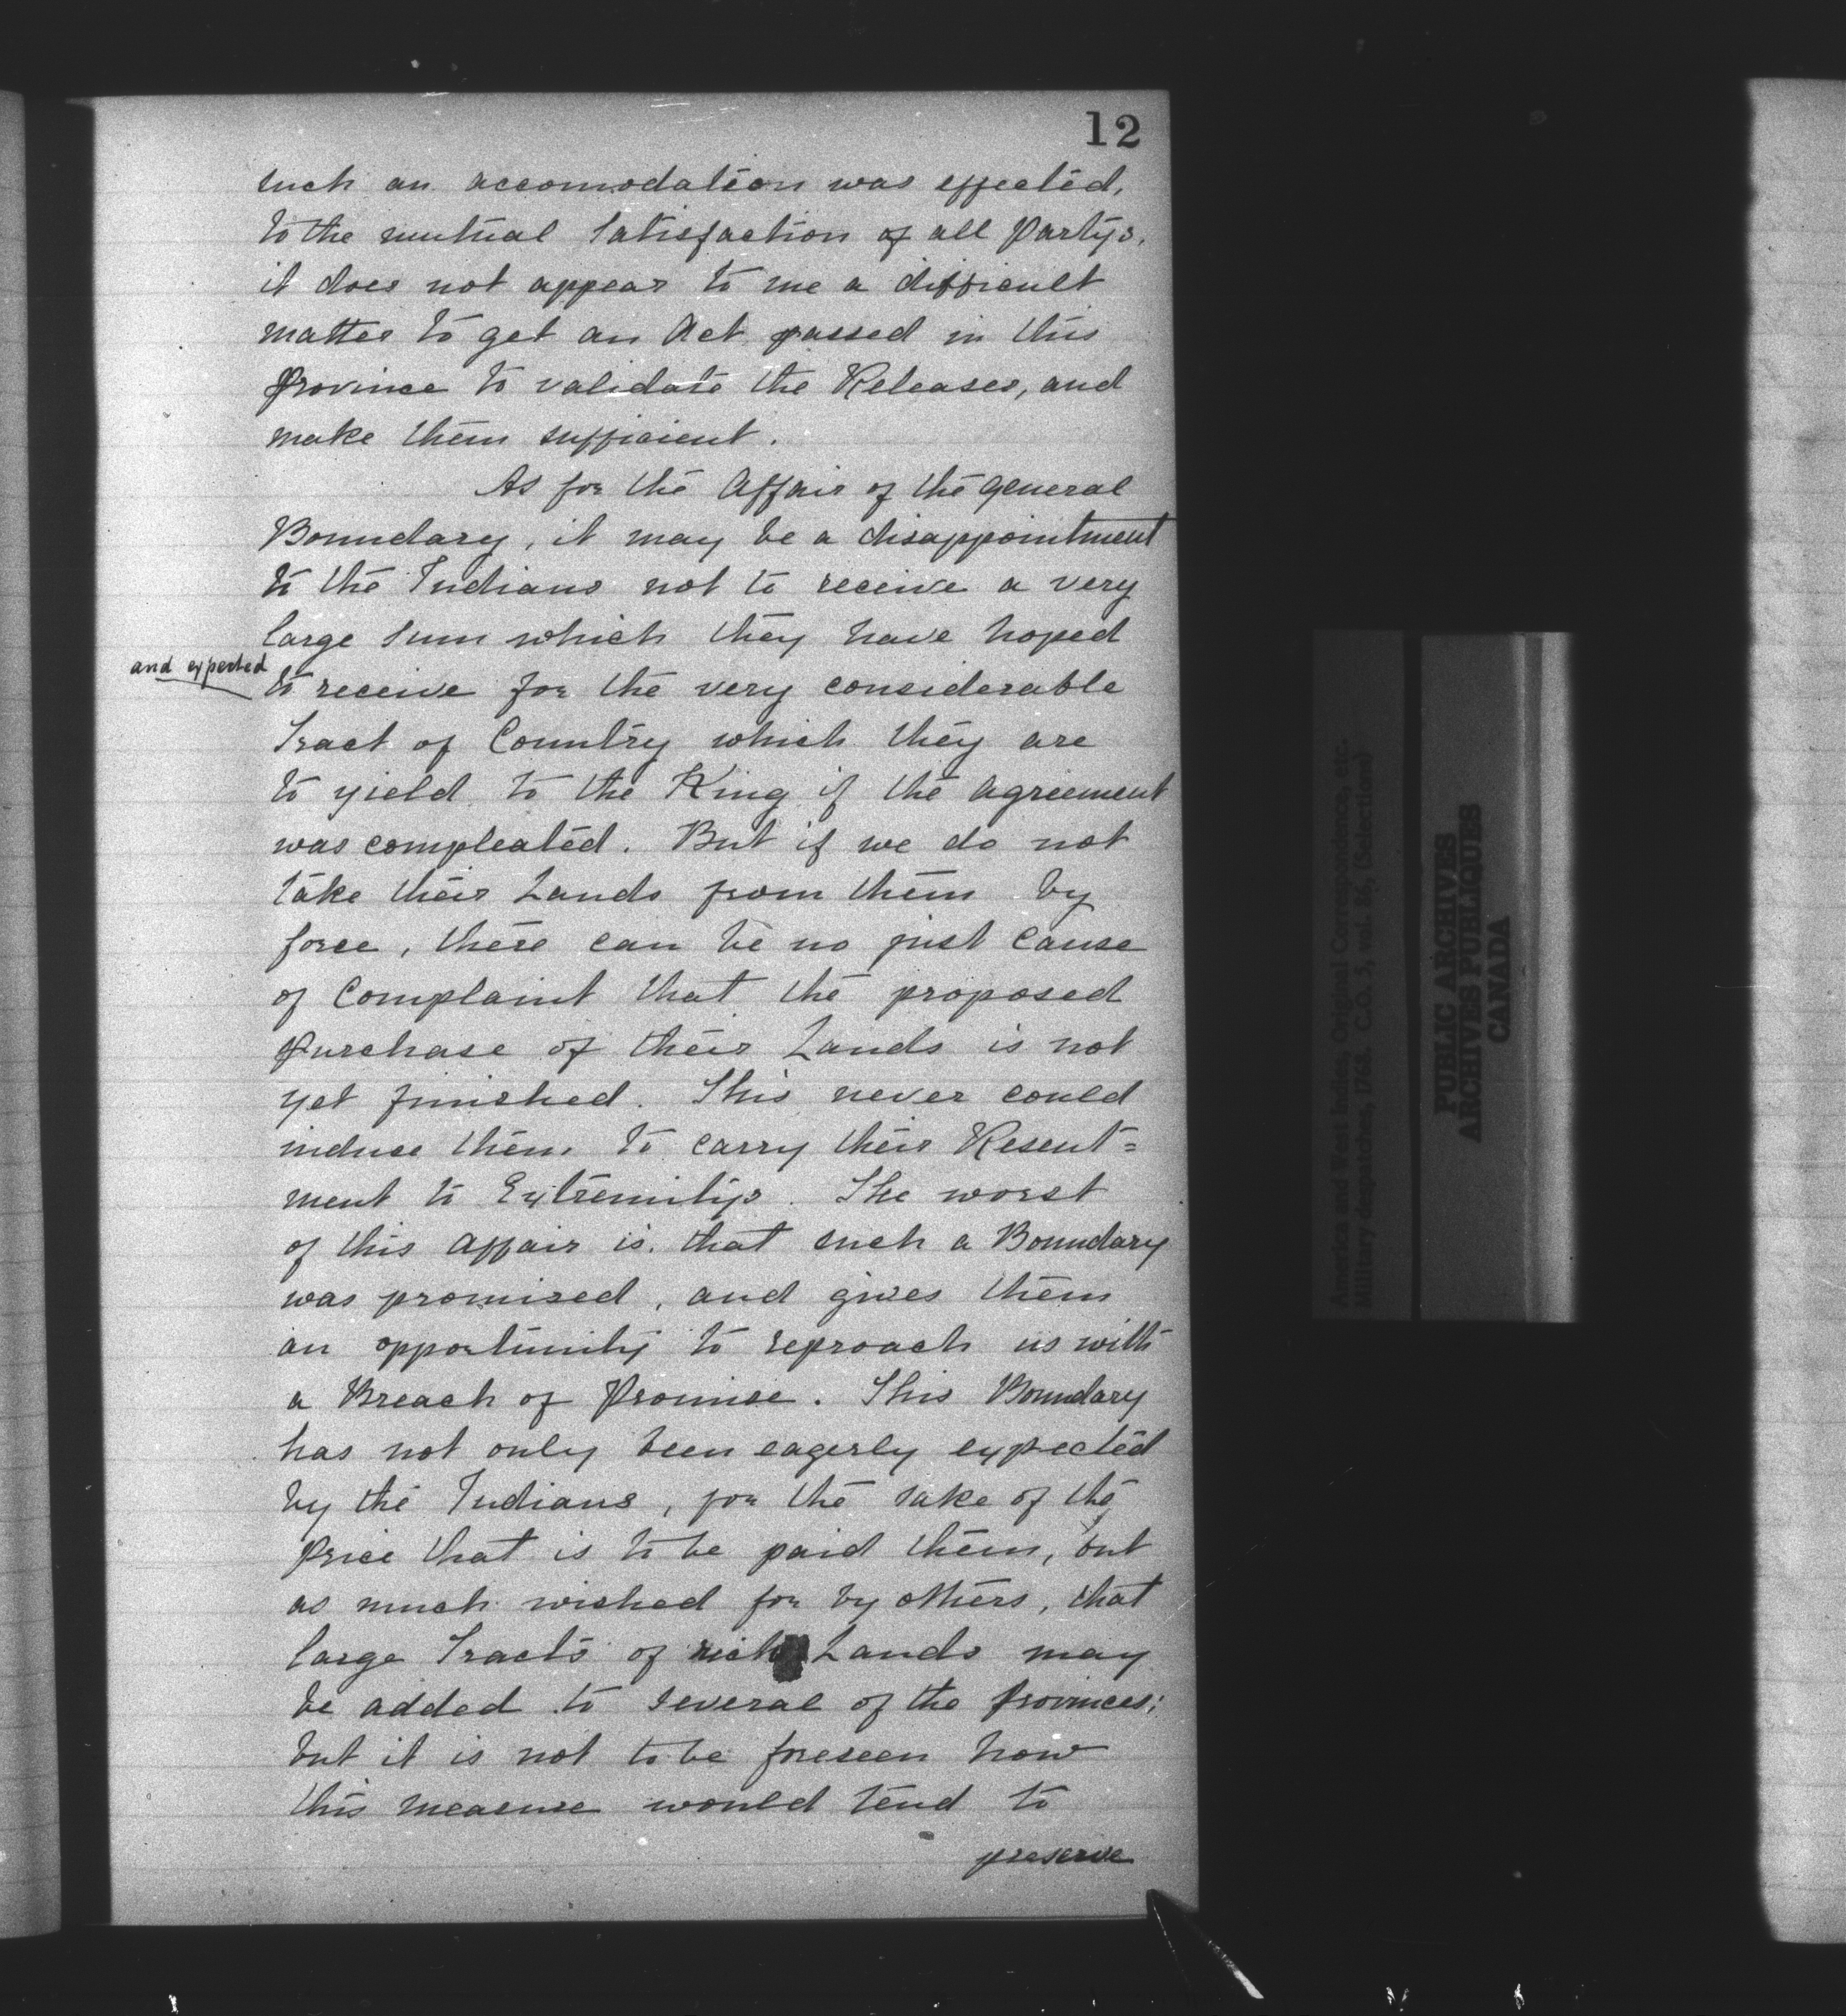 12
such an accomodation was effected,
to the mutual Satisfaction of all Partys,
it does not appear to me a difficult
matter to get an Act passed in this
Province to validate the Releases, and
make them sufficient.
As for the Affair of the general
Boundary, it may be a disappointment
to the Indians not to receive a very
large Sum which they have hoped
and expected
to receive for the very considerable
Tract of Country which they are
to yield to the King if the agreement
was compleated. But if we do not
take their Lands from them by
force, there can be no just Cause
of Complaint that the proposed
Purchase of their Lands is not
yet finished. This never could
induce them to carry their Resent=
ment to Extremitys. The worst
of this Affair is, that such a Boundary
was promised, and gives them
an opportunity to reproach us with
a Breach of Promise. This Boundary
has not only been eagerly expected
by the Indians, for the sake of the
Price that is to be paid them, but
as much wished for by others, that
large Tracts of rich Lands may
be added to several of the Provinces;
but it is not to be foreseen how
this measure would tend to
preserve
America and West Indies, Original Correspondence, etc.
Military despatches, 1768. C.O. 5, vol. 86, (Selections)
PUBLIC ARCHIVES
ARCHIVES PUBLIQUES
CANADA